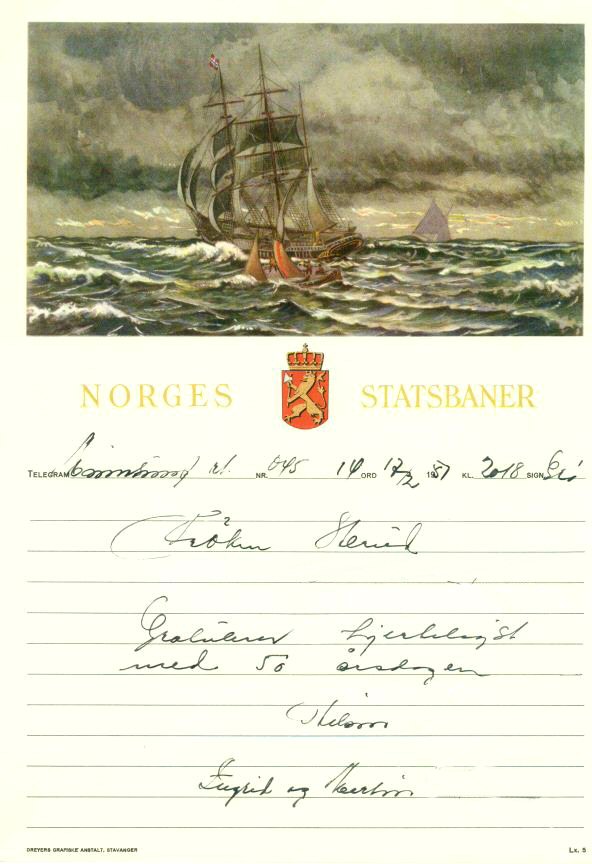 NORGES STATSBANER
TELEGRAM st. NR. 045 14 ORD 17/2 1951 KL. 2018 SIGN.
Frøken
Gratulerer hjerteligst
med 50 årsdagen
Hilsen
Ingrid og
DREYERS GRAFISKE ANSTALT, STAVANGER
Lx. 5